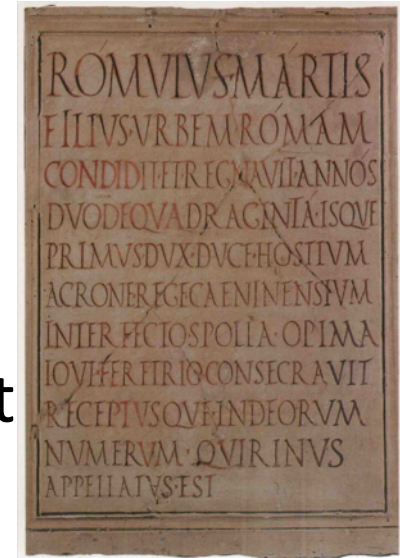 RÓMVLVS·MÁRTIS
FÍLIVS·VRBEM·RÓMAM
CONDIDIT·ET·REGNAVIT·ANNÓS
DVODEQVADRAGINTÁ·ISQVE
PRIMVS·DVX·DVCE·HOSTIVM
ACRONE·REGE·CAENINENSIVM
INTERFECTO·SPOLIA·OPIMA
IOVI·FERETRIO·CONSECRAVIT
RECEPTVSQVE·IN·DEORVM
NVMERVM·QVIRINVS
APPELLATVS·EST
t